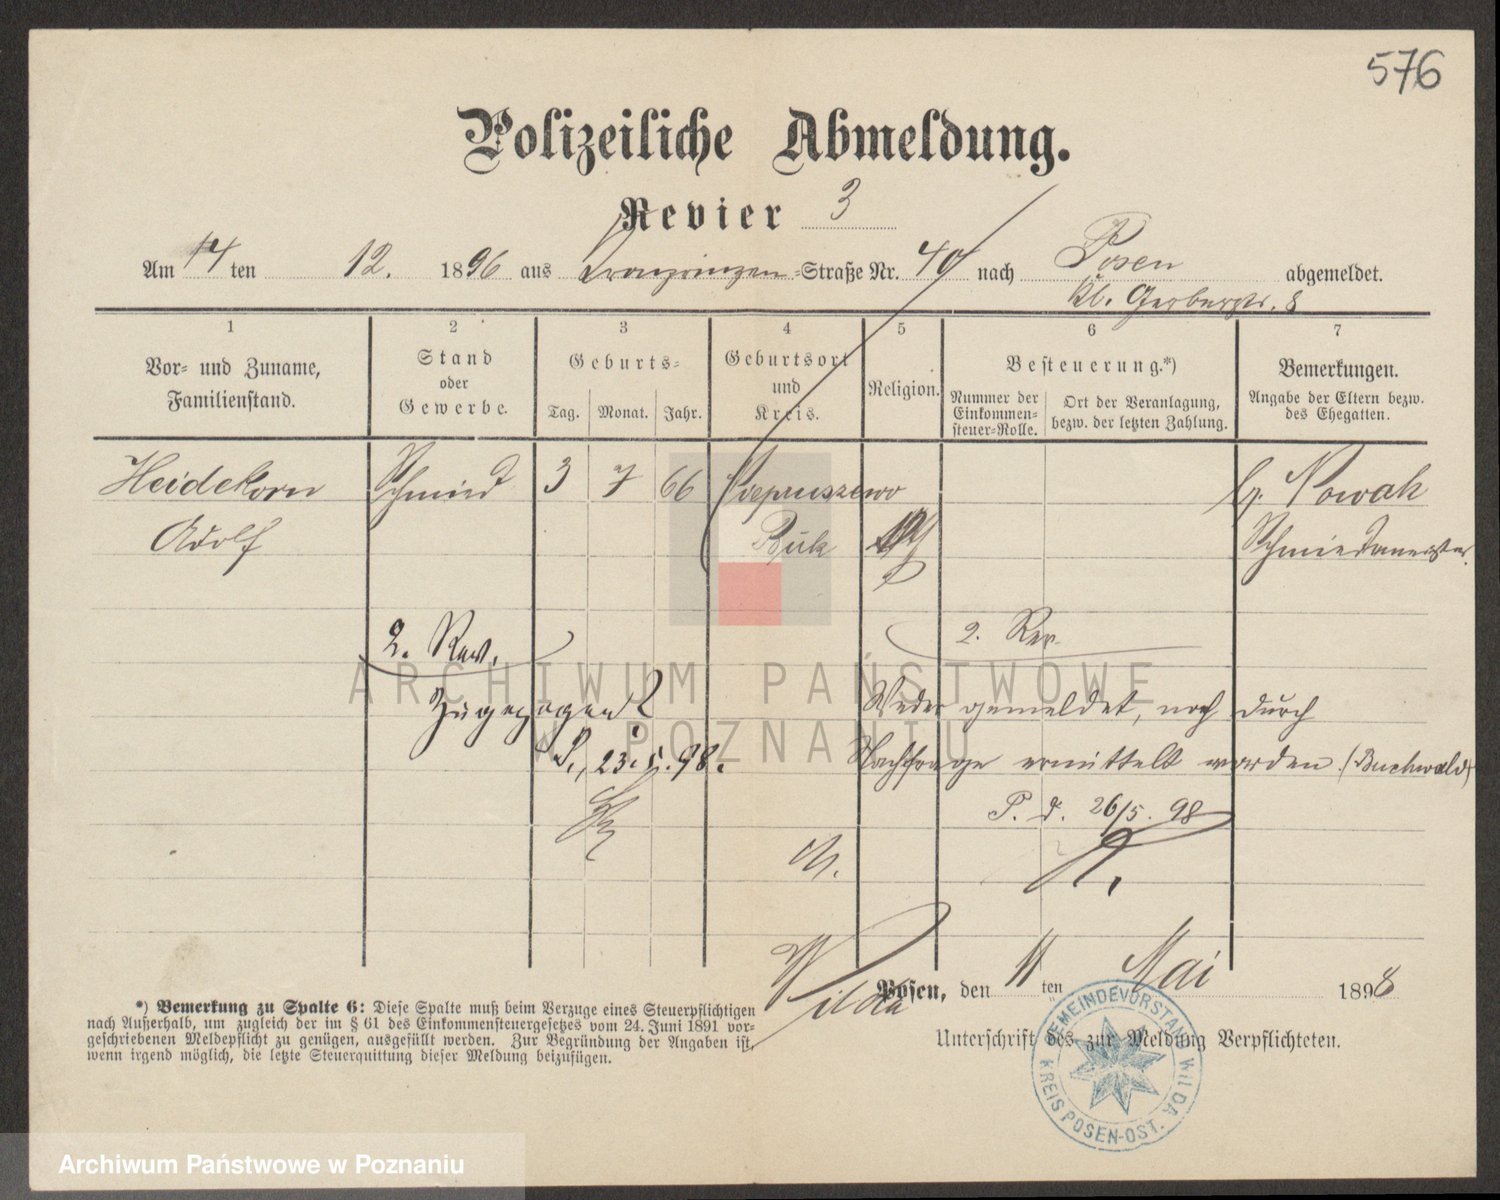 576
Polizeiliche Abmeldung.
Revier 3
Am 14 ten 12. 1896 aus Kronprinzen-Straße Nr. 40 nach Posen abgemeldet.
kl. Gerberstr. 8
1 2 3 4 5 6 7
Vor- und Zuname, Familienstand.
Stand oder Gewerbe.
Geburts-
Tag. Monat. Jahr.
Geburtsort und Kreis.
Religion.
Besteuerung.*)
Nummer der Einkommen-steuer-Rolle.
Ort der Veranlagung, bezw. der letzten Zahlung.
Bemerkungen.
Angabe der Eltern bezw. des Ehegatten.
Heidekorn Schmied 3 7 66 b. Nowak
Adolf Buk Schmiedemeister.
2. Rev. 2. Rev.
Zugezogen? Weder gemeldet, noch durch
P., 23.5.98. Nachfrage ermittelt worden. (Buchwald)
P. d. 26/5. 98
Wilda
Posen, den 11 ten Mai 1898
Unterschrift des zur Meldung Verpflichteten.
*) Bemerkung zu Spalte 6: Diese Spalte muß beim Verzuge eines Steuerpflichtigen
nach Außerhalb, um zugleich der im § 61 des Einkommensteuergesetzes vom 24. Juni 1891 vor-
geschriebenen Meldepflicht zu genügen, ausgefüllt werden. Zur Begründung der Angaben ist,
wenn irgend möglich, die letzte Steuerquittung dieser Meldung beizufügen.
GEMEINDEVORSTAND WILDA
KREIS POSEN-OST.
ARCHIWUM PAŃSTWOWE
W POZNANIU
Archiwum Państwowe w Poznaniu